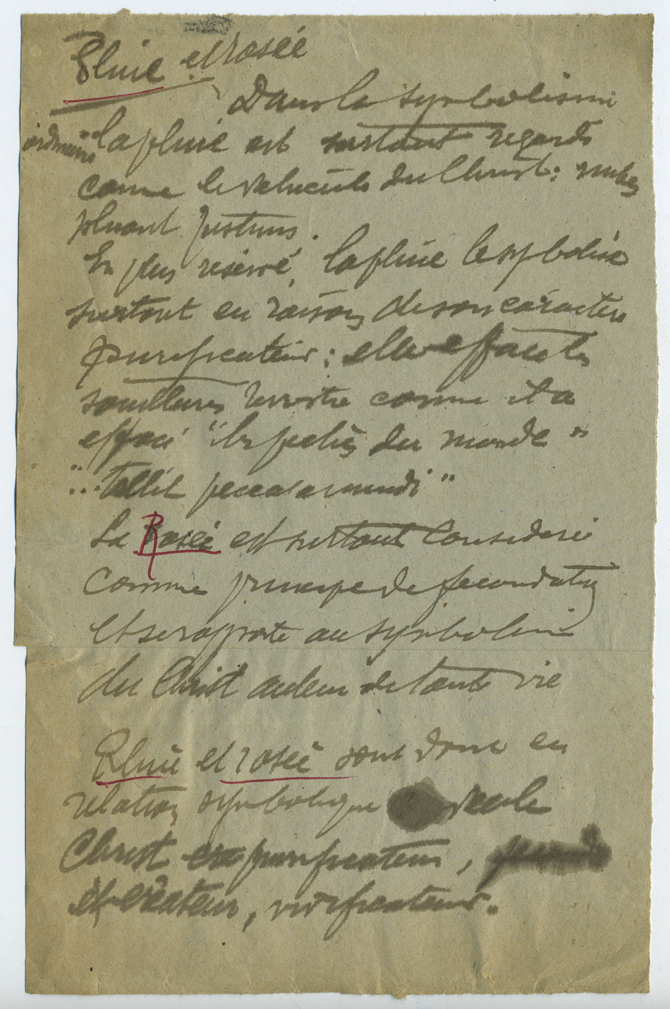 Pluie et rosée
Dans la symbolisme
ordinaire la pluie est surtout regardé
comme le véhicule du Christ : nubes
pluant justum.
En plus réservé, la pluie le symbolise
surtout en raison de son caractère
purificateur : elle efface les
souillures terrestre comme il a
effacé "les péchés du monde"
"... tollit peccata mundi"
La Rosée est surtout considéré
comme principe de fécondation
et se rapporte au symbolisme
du Christ auteur de toute vie
Pluie et rosée sont donc en
relation symbolique le
Christ purificateur,
et créateur, vivificateur.